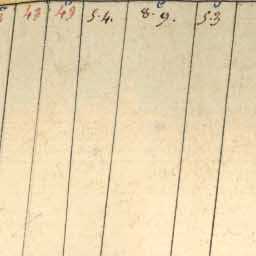 43 49 5.4. 8.9. 5.3